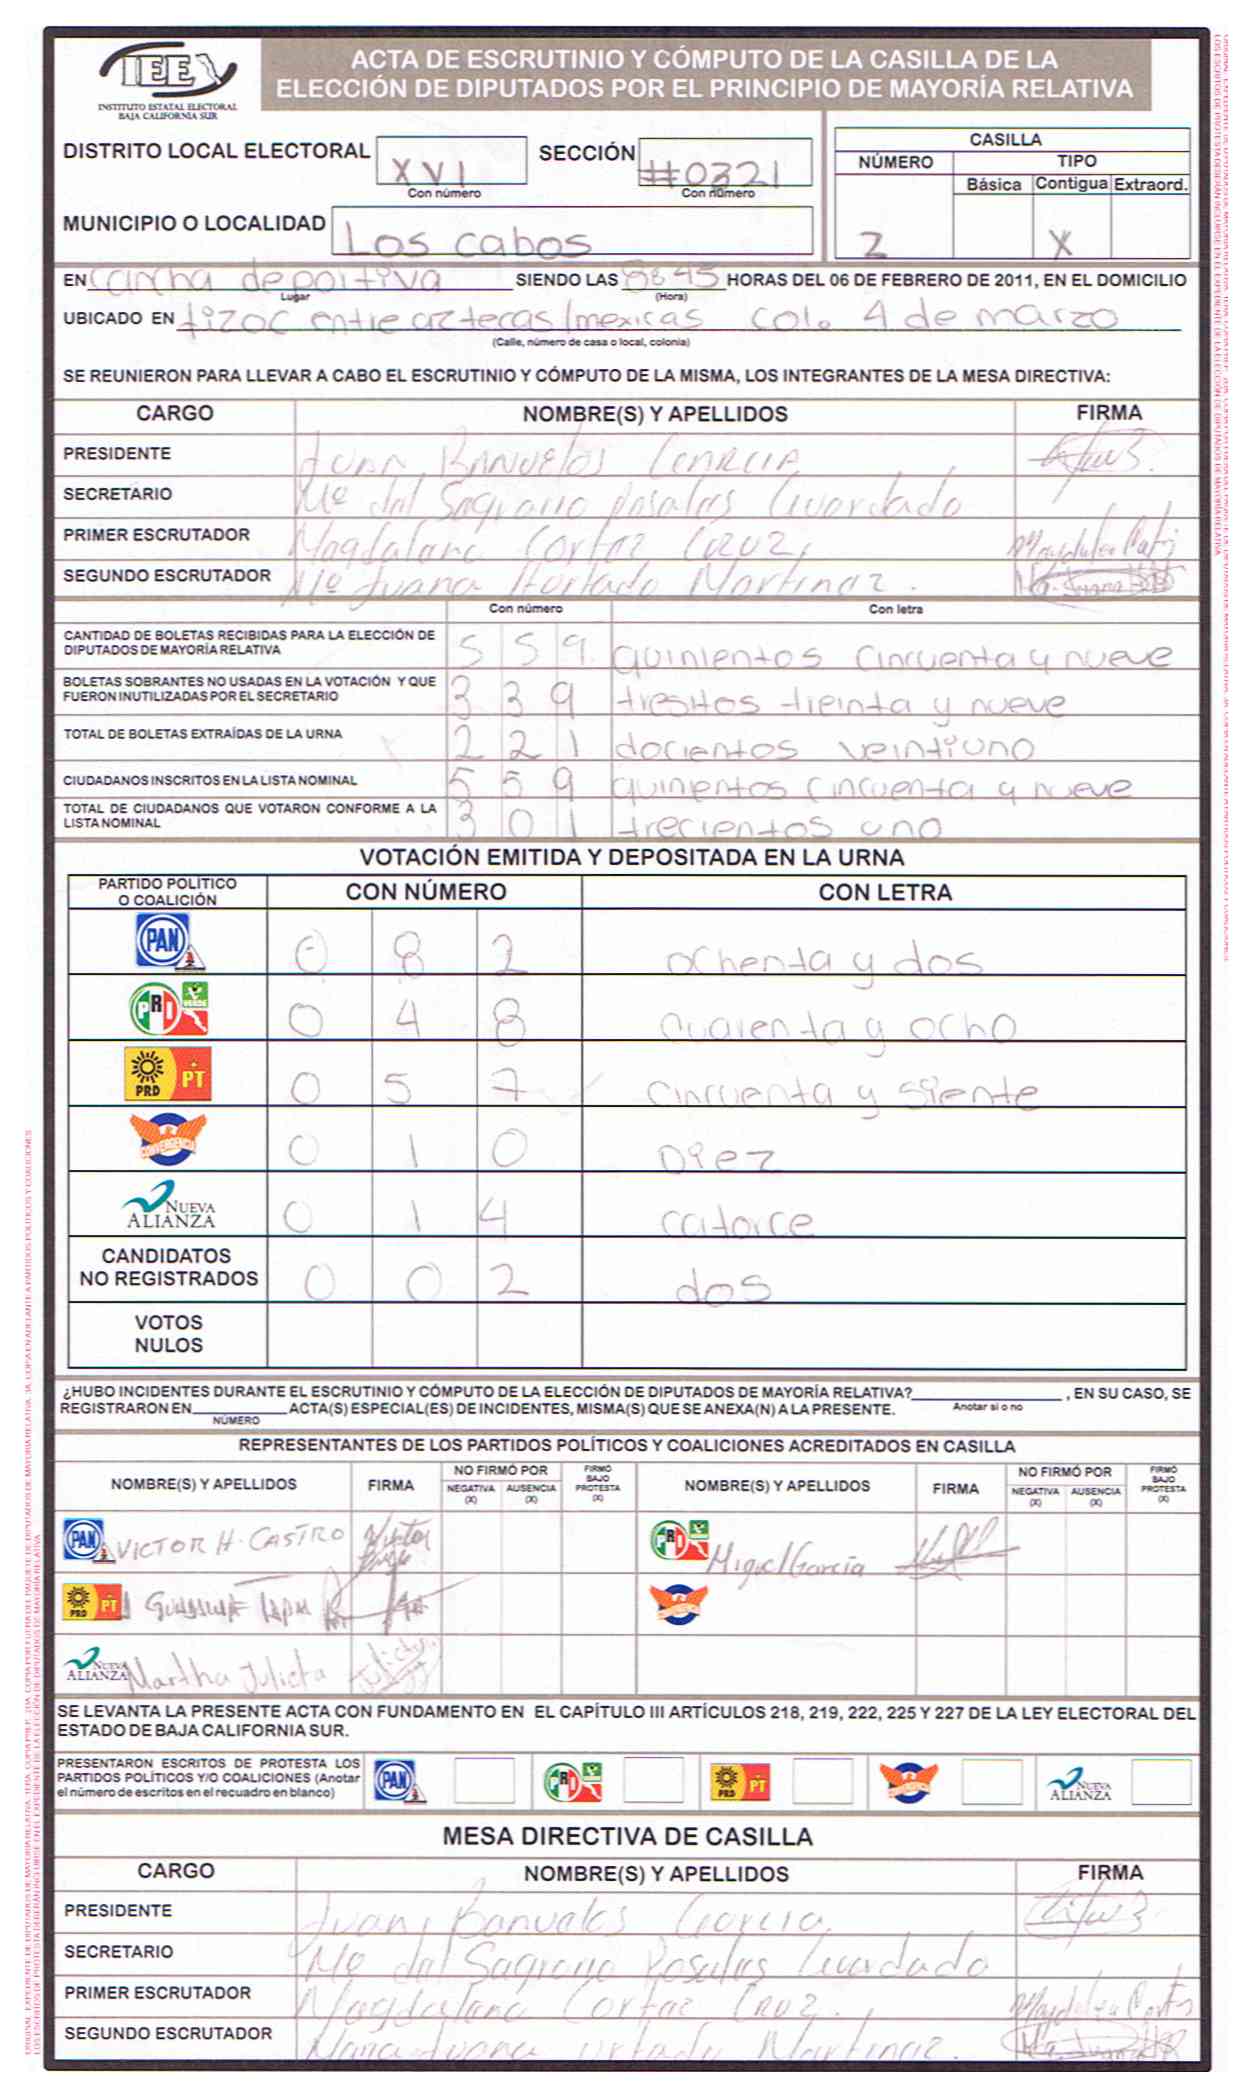 IEE
INSTITUTO ESTATAL ELECTORAL
BAJA CALIFORNIA SUR
ACTA DE ESCRUTINIO Y CÓMPUTO DE LA CASILLA DE LA
ELECCIÓN DE DIPUTADOS POR EL PRINCIPIO DE MAYORÍA RELATIVA
DISTRITO LOCAL ELECTORAL XVI SECCIÓN #0321
Con número Con número
MUNICIPIO O LOCALIDAD Los cabos
CASILLA
NÚMERO TIPO
Básica Contigua Extraord.
2 X
EN cancha depoitiva SIENDO LAS 8:45 HORAS DEL 06 DE FEBRERO DE 2011, EN EL DOMICILIO
Lugar (Hora)
UBICADO EN tizoc entre aztecas/mexicas col. 4 de marzo
(Calle, número de casa o local, colonia)
SE REUNIERON PARA LLEVAR A CABO EL ESCRUTINIO Y CÓMPUTO DE LA MISMA, LOS INTEGRANTES DE LA MESA DIRECTIVA:
CARGO NOMBRE(S) Y APELLIDOS FIRMA
PRESIDENTE Juan Banuelos Garcia
SECRETARIO Mª del Sagrario Rosales Guardado
PRIMER ESCRUTADOR Magdalena Cortez Cruz
SEGUNDO ESCRUTADOR Mª Juana Hurtado Martinez.
Con número Con letra
CANTIDAD DE BOLETAS RECIBIDAS PARA LA ELECCIÓN DE
DIPUTADOS DE MAYORÍA RELATIVA 5 5 9 quinientos cincuenta y nueve
BOLETAS SOBRANTES NO USADAS EN LA VOTACIÓN Y QUE
FUERON INUTILIZADAS POR EL SECRETARIO 3 3 9 tresitos treinta y nueve
TOTAL DE BOLETAS EXTRAÍDAS DE LA URNA 2 2 1 docientos veintiuno
CIUDADANOS INSCRITOS EN LA LISTA NOMINAL 5 5 9 quinientos cincuenta y nueve
TOTAL DE CIUDADANOS QUE VOTARON CONFORME A LA
LISTA NOMINAL 3 0 1 trecientos uno
VOTACIÓN EMITIDA Y DEPOSITADA EN LA URNA
PARTIDO POLÍTICO
O COALICIÓN CON NÚMERO CON LETRA
PAN 0 8 2 ochenta y dos
PRI VERDE 0 4 8 cuarenta y ocho
PRD PT 0 5 7 cincuenta y siente
CONVERGENCIA 0 1 0 Diez
NUEVA ALIANZA 0 1 4 catorce
CANDIDATOS
NO REGISTRADOS 0 0 2 dos
VOTOS
NULOS
¿HUBO INCIDENTES DURANTE EL ESCRUTINIO Y CÓMPUTO DE LA ELECCIÓN DE DIPUTADOS DE MAYORÍA RELATIVA? , EN SU CASO, SE
Anotar si o no
REGISTRARON EN ACTA(S) ESPECIAL(ES) DE INCIDENTES, MISMA(S) QUE SE ANEXA(N) A LA PRESENTE.
NÚMERO
REPRESENTANTES DE LOS PARTIDOS POLÍTICOS Y COALICIONES ACREDITADOS EN CASILLA
NOMBRE(S) Y APELLIDOS FIRMA NO FIRMÓ POR NEGATIVA (X) AUSENCIA (X) FIRMÓ BAJO PROTESTA (X) NOMBRE(S) Y APELLIDOS FIRMA NO FIRMÓ POR NEGATIVA (X) AUSENCIA (X) FIRMÓ BAJO PROTESTA (X)
PAN VICTOR H. CASTRO PRI VERDE Miguel García
PRD PT GUADALUPE TAPIA
NUEVA ALIANZA Martha Julieta
SE LEVANTA LA PRESENTE ACTA CON FUNDAMENTO EN EL CAPÍTULO III ARTÍCULOS 218, 219, 222, 225 Y 227 DE LA LEY ELECTORAL DEL
ESTADO DE BAJA CALIFORNIA SUR.
PRESENTARON ESCRITOS DE PROTESTA LOS
PARTIDOS POLÍTICOS Y/O COALICIONES (Anotar
el número de escritos en el recuadro en blanco)
PAN PRI PRD PT CONVERGENCIA NUEVA ALIANZA
MESA DIRECTIVA DE CASILLA
CARGO NOMBRE(S) Y APELLIDOS FIRMA
PRESIDENTE Juan Banuelos Garcia
SECRETARIO Mª del Sagrario Rosales Guardado
PRIMER ESCRUTADOR Magdalena Cortez Cruz.
SEGUNDO ESCRUTADOR Maria Juana Urtado Martinez.